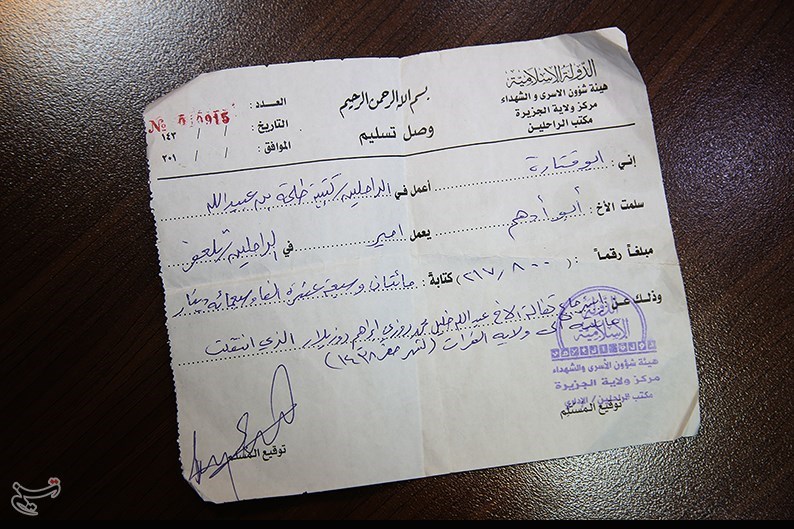 الدولة الإسلامية
هيئة شؤون الاسرى و الشهداء
مركز ولاية الجزيرة
مكتب الراحلين
بسم الله الرحمن الرحيم
وصل تسليم
العدد : № 0915
التاريخ : / / ١٤٣
الموافق : / / ٢٠١
إني : ابو قتادة أعمل في الراحلين كتيبة طلحة بن عبيدالله
سلمت الأخ : أبو أدهم يعمل امير في الراحلين تلعفر
مبلغاً رقماً : (٢١٧/٨٠٠) كتابةً : مائتان وسبعة عشرة الفا دينار
وذلك عن كفالة الاخ عبدالله خليل محمد إبراهيم الذي انتقلت
الى ولاية الفرات (لشهر صفر ١٤٣٨)
توقيع المُسَلِّم
الدولة الإسلامية
هيئة شؤون الأسرى والشهداء
مركز ولاية الجزيرة
مكتب الراحلين / الإداري
توقيع المُستَلِم
تسنیم